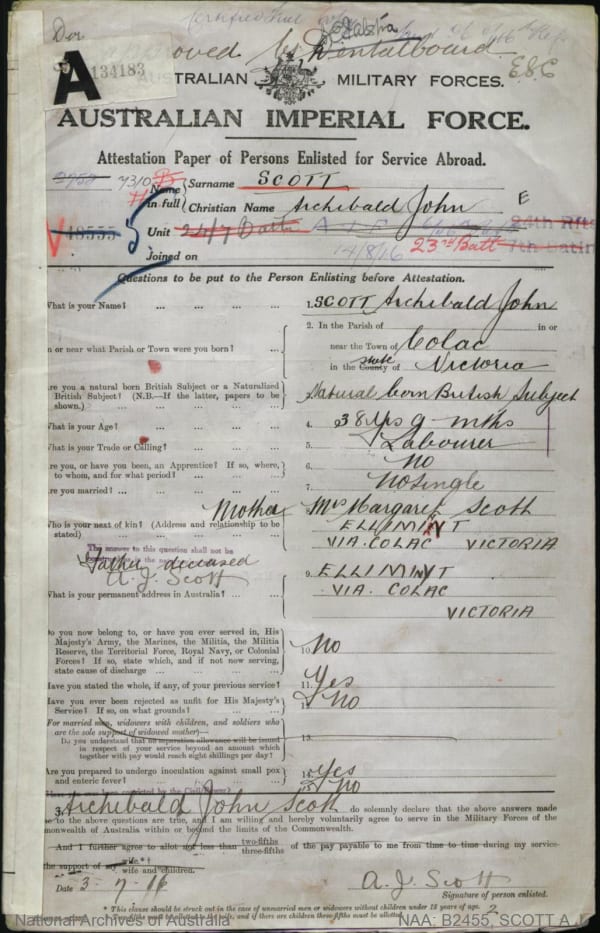 Certified True Copy
Approved by Dentalboard
A
134183
E & C
AUSTRALIAN MILITARY FORCES.
AUSTRALIAN IMPERIAL FORCE.
Attestation Paper of Persons Enlisted for Service Abroad.
7310
Name in full
Surname SCOTT
Christian Name Archibald John
E
18555
Unit 24/7 Battn A I F 24th Rfts
23rd Batt 7th Battn
Joined on 14/8/16
Questions to be put to the Person Enlisting before Attestation.
What is your Name? ... 1. SCOTT Archibald John
In or near what Parish or Town were you born? ... 2. In the Parish of in or
near the Town of Colac
in the County of state Victoria
Are you a natural born British Subject or a Naturalized
British Subject? (N.B.—If the latter, papers to be
shown.) ... Natural born British Subject
What is your Age? ... 4. 38 yrs 9 mths
What is your Trade or Calling? ... 5. Labourer
Are you, or have you been, an Apprentice? If so, where,
to whom, and for what period? ... 6. No
Are you married? ... 7. No Single
Mother Mrs Margaret Scott
Who is your next of kin? (Address and relationship to be
stated) ELLIMINYT
VIA. COLAC VICTORIA
The answer to this question shall not be
Father deceased
A. J. Scott
What is your permanent address in Australia? ... 9. ELLIMINYT
VIA. COLAC
VICTORIA
Do you now belong to, or have you ever served in, His
Majesty's Army, the Marines, the Militia, the Militia
Reserve, the Territorial Force, Royal Navy, or Colonial
Forces? If so, state which, and if not now serving,
state cause of discharge ... 10. No
Have you stated the whole, if any, of your previous service? 11. Yes
Have you ever been rejected as unfit for His Majesty's
Service? If so, on what grounds? ... 12. No
For married men, widowers with children, and soldiers who
are the sole support of widowed mother—
Do you understand that no separation allowance will be issued
in respect of your service beyond an amount which
together with pay would reach eight shillings per day? 13.
Are you prepared to undergo inoculation against small pox
and enteric fever? ... 14. Yes
15. No
3. Archibald John Scott do solemnly declare that the above answers made
me to the above questions are true, and I am willing and hereby voluntarily agree to serve in the Military Forces of the
monwealth of Australia within or beyond the limits of the Commonwealth.
And I further agree to allot not less than two-fifths three-fifths of the pay payable to me from time to time during my service
the support of my wife.*†
wife and children.
Date 3-7-16
A. J. Scott
Signature of person enlisted.
* This clause should be struck out in the case of unmarried men or widowers without children under 18 years of age. 2
† Two-fifths must be allotted to the wife, and if there are children three-fifths must be allotted.
National Archives of Australia
NAA: B2455, SCOTT A J